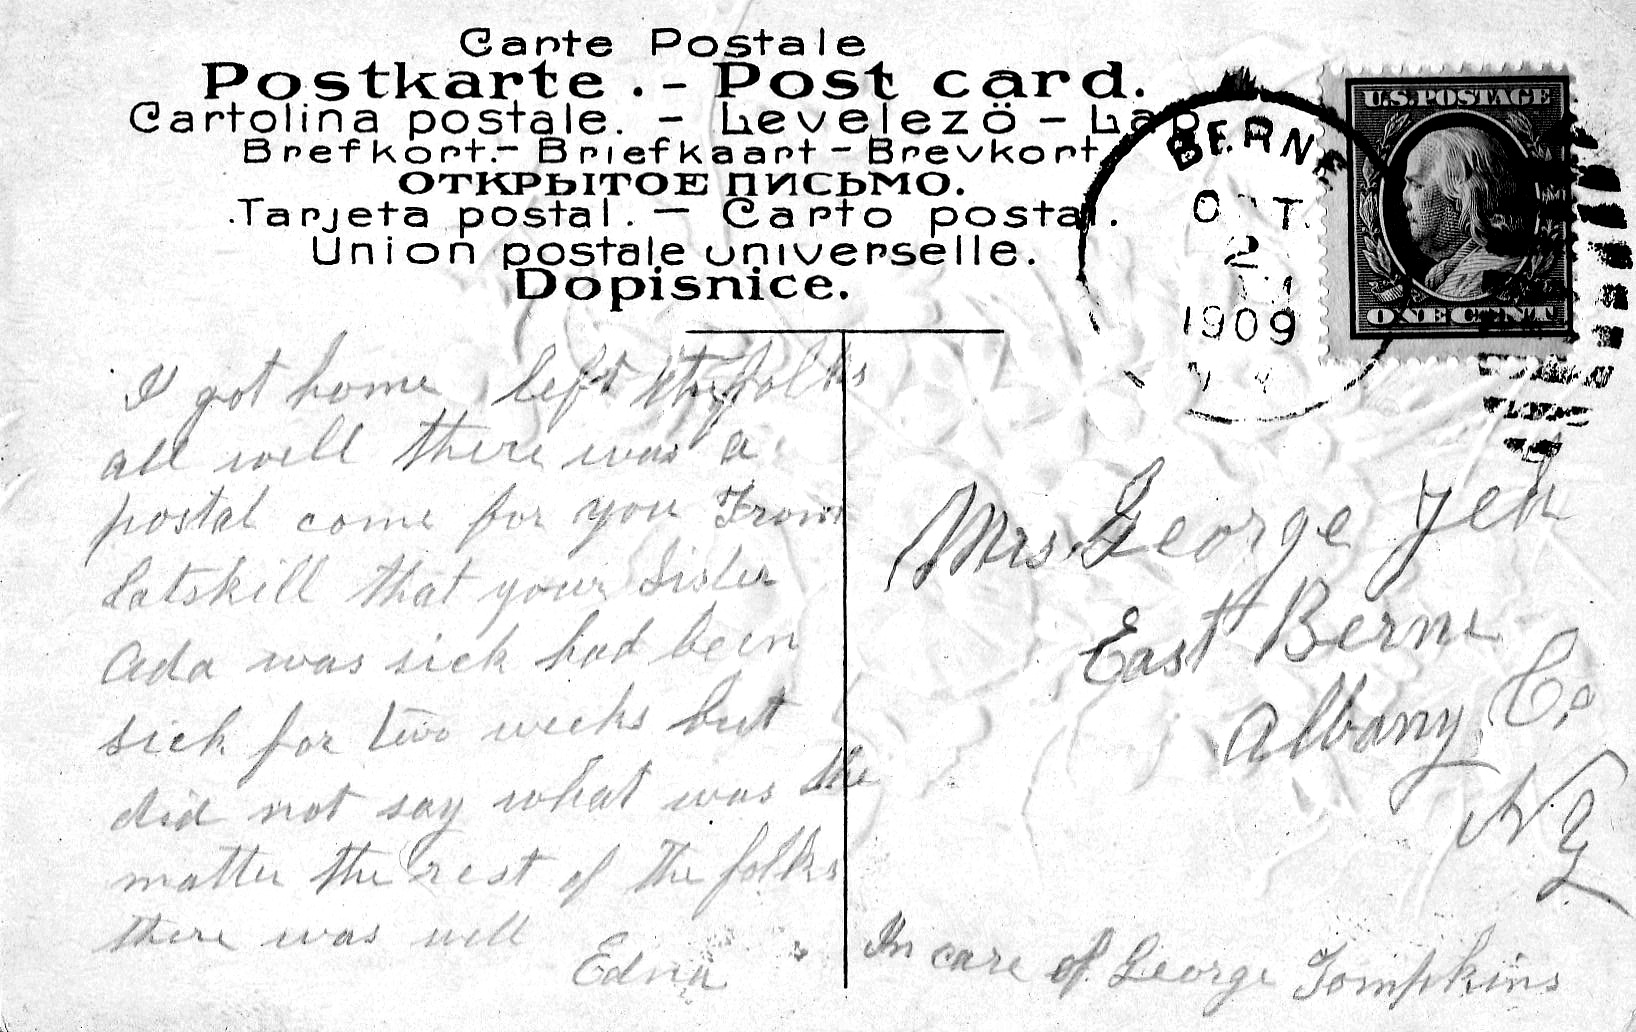 Carte Postale
Postkarte . - Post card.
Cartolina postale. - Levelezö - Lap.
Brefkort. - Briefkaart - Brevkort
ОТКРЫТОЕ ПИСЬМО.
Tarjeta postal. - Carto postal.
Union postale universelle.
Dopisnice.
BERNE
OCT
2
1909
N.Y.
U.S. POSTAGE
ONE CENT
I got home left the folks
all well there was a
postal come for you From
Catskill that your Sister
Ada was sick had been
sick for two weeks but
did not say what was the
matter the rest of the folks
there was well
Edna
Mrs. George
East Berne
Albany Co.
N Y
In care of George Tompkins